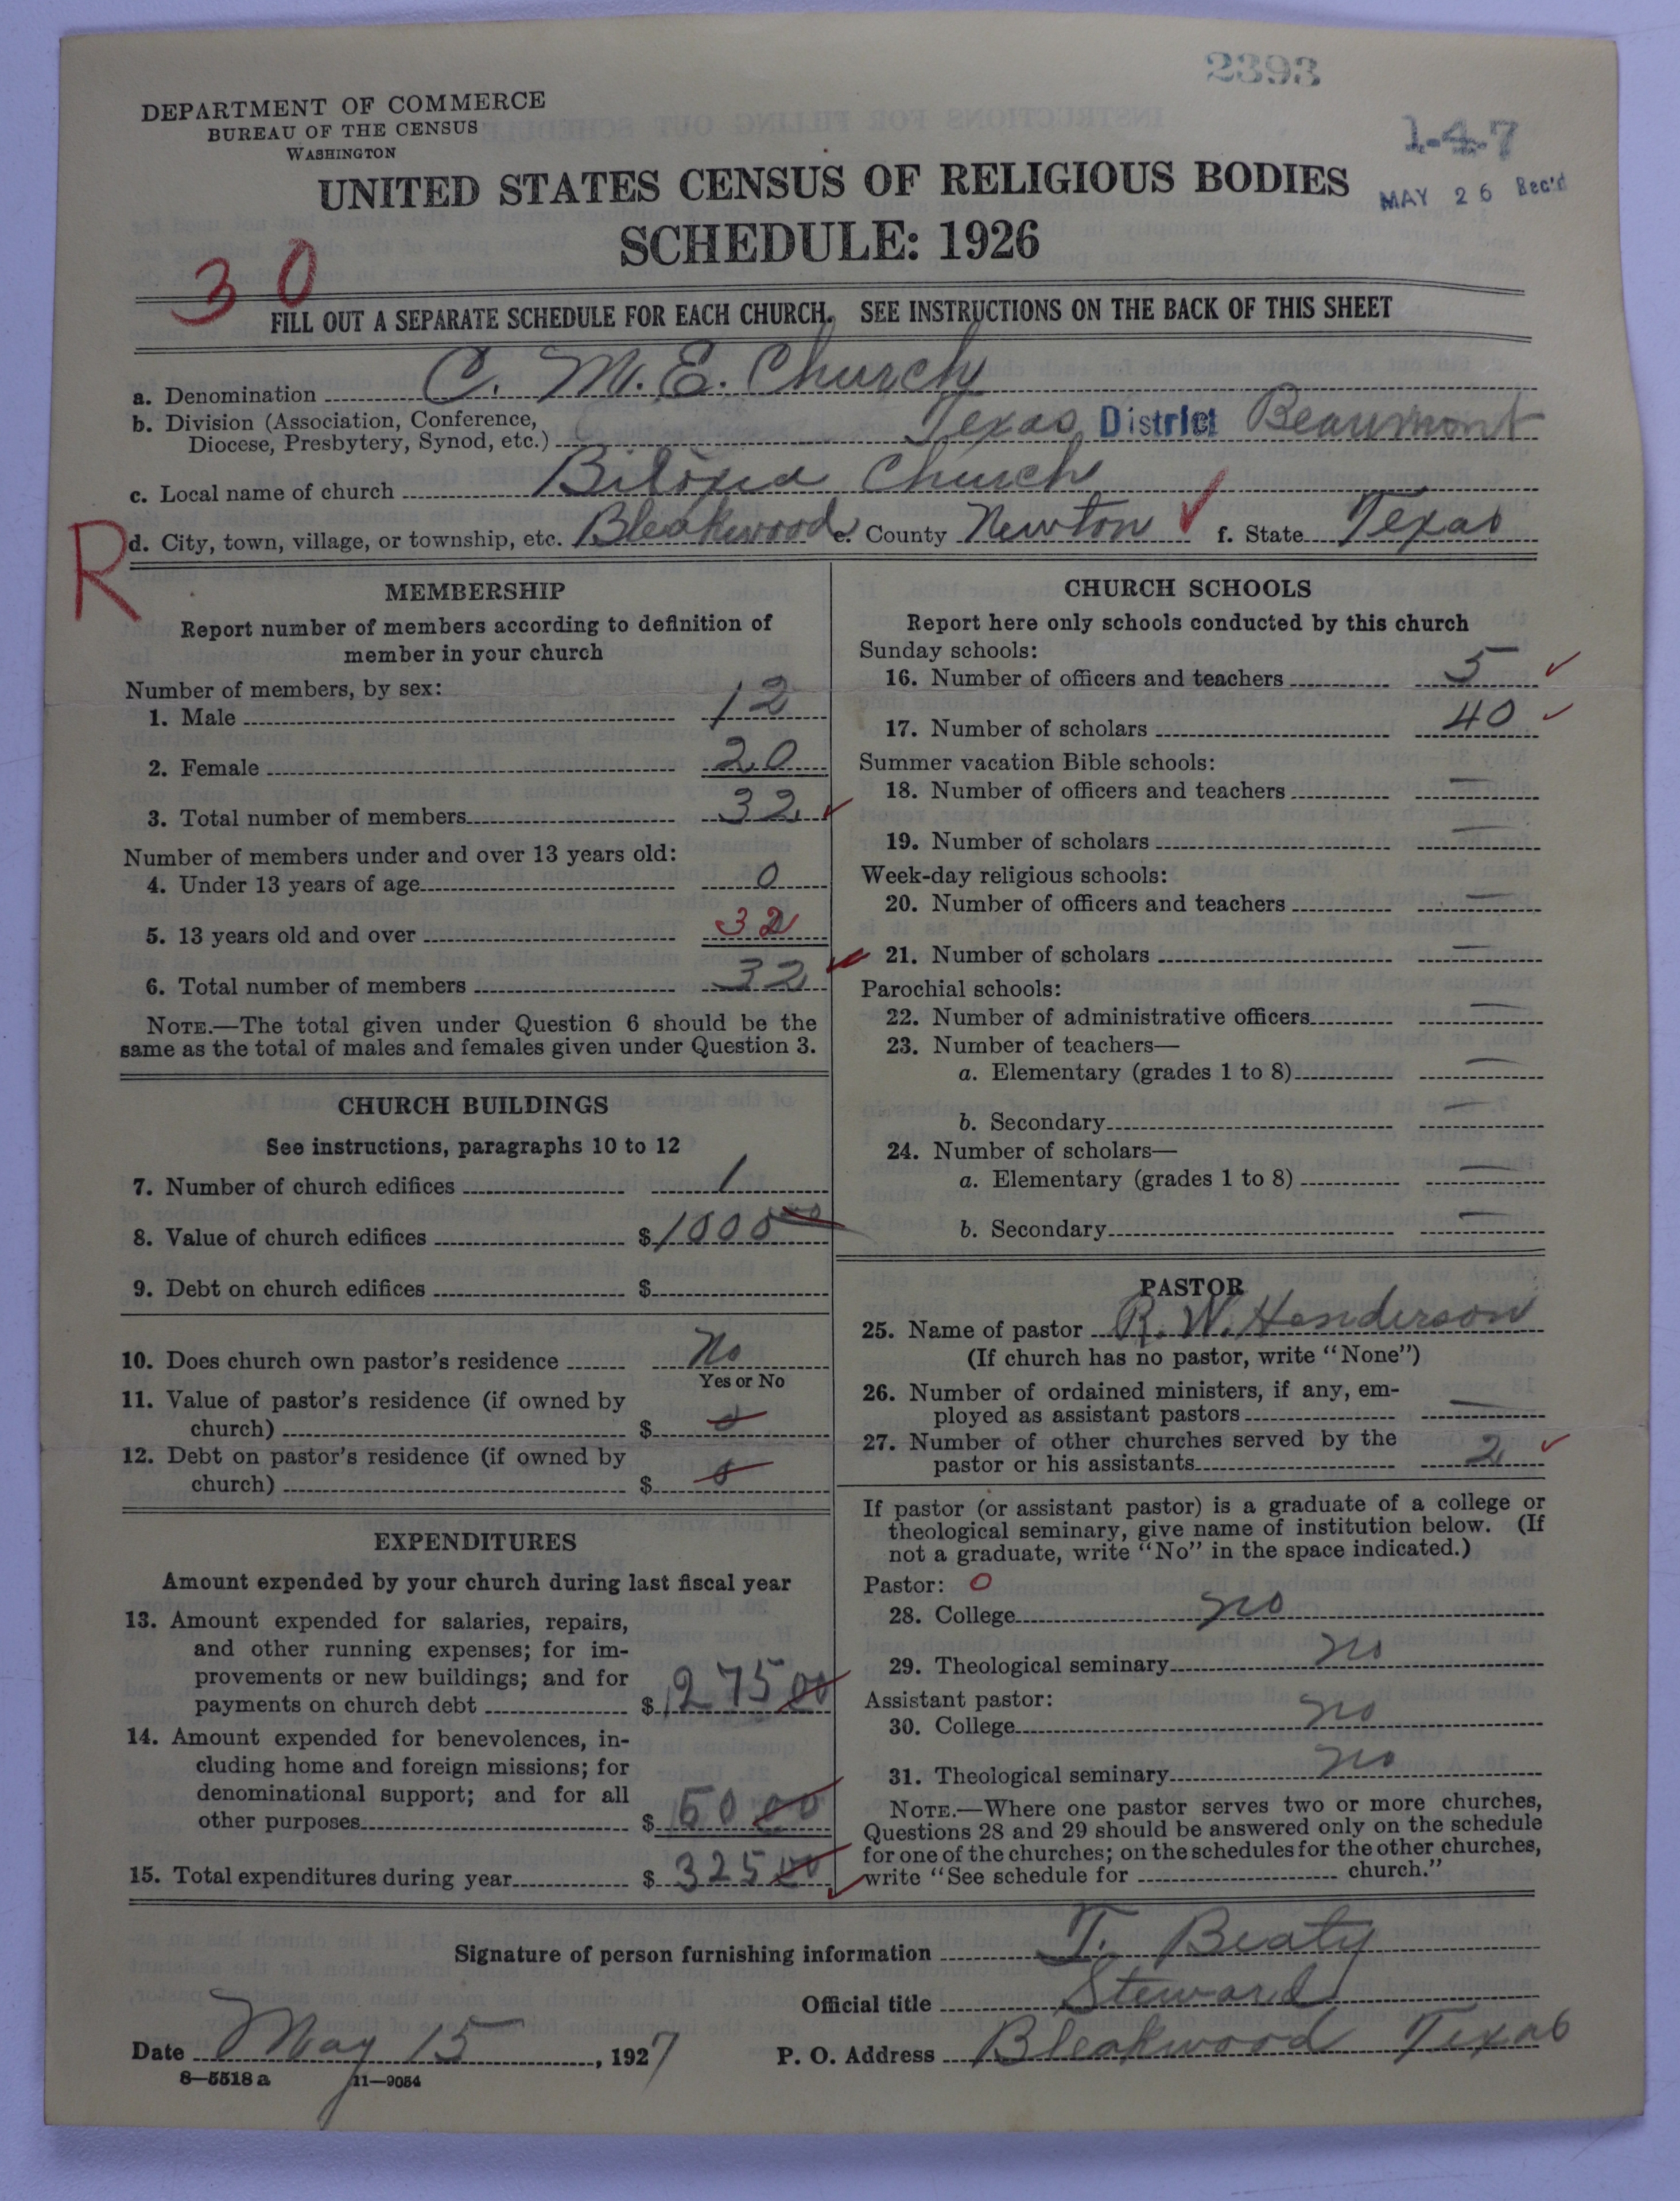 2393
DEPARTMENT OF COMMERCE
BUREAU OF THE CENSUS
WASHINGTON
1-4-7
MAY 26 Rec'd
UNITED STATES CENSUS OF RELIGIOUS BODIES
SCHEDULE: 1926
30
FILL OUT A SEPARATE SCHEDULE FOR EACH CHURCH. SEE INSTRUCTIONS ON THE BACK OF THIS SHEET
a. Denomination C. M. E. Church
b. Division (Association, Conference,
Diocese, Presbytery, Synod, etc.) Texas District Beaumont
c. Local name of church Biloxia Church
R
d. City, town, village, or township, etc. Bleakwood e. County Newton f. State Texas
MEMBERSHIP
Report number of members according to definition of
member in your church
Number of members, by sex:
1. Male 12
2. Female 20
3. Total number of members 32
Number of members under and over 13 years old:
4. Under 13 years of age 0
5. 13 years old and over 32
6. Total number of members 32
NOTE.—The total given under Question 6 should be the
same as the total of males and females given under Question 3.
CHURCH BUILDINGS
See instructions, paragraphs 10 to 12
7. Number of church edifices 1
8. Value of church edifices $1000 00
9. Debt on church edifices $
10. Does church own pastor's residence No
Yes or No
11. Value of pastor's residence (if owned by
church) $ 0
12. Debt on pastor's residence (if owned by
church) $ 0
EXPENDITURES
Amount expended by your church during last fiscal year
13. Amount expended for salaries, repairs,
and other running expenses; for im-
provements or new buildings; and for
payments on church debt $ 275 00
14. Amount expended for benevolences, in-
cluding home and foreign missions; for
denominational support; and for all
other purposes $ 50 00
15. Total expenditures during year $ 325 00
CHURCH SCHOOLS
Report here only schools conducted by this church
Sunday schools:
16. Number of officers and teachers 5
17. Number of scholars 40
Summer vacation Bible schools:
18. Number of officers and teachers —
19. Number of scholars —
Week-day religious schools:
20. Number of officers and teachers —
21. Number of scholars —
Parochial schools:
22. Number of administrative officers —
23. Number of teachers—
a. Elementary (grades 1 to 8) —
b. Secondary —
24. Number of scholars—
a. Elementary (grades 1 to 8) —
b. Secondary —
PASTOR
25. Name of pastor R. W. Henderson
(If church has no pastor, write "None")
26. Number of ordained ministers, if any, em-
ployed as assistant pastors —
27. Number of other churches served by the
pastor or his assistants 2
If pastor (or assistant pastor) is a graduate of a college or
theological seminary, give name of institution below. (If
not a graduate, write "No" in the space indicated.)
Pastor: 0
28. College no
29. Theological seminary no
Assistant pastor:
30. College no
31. Theological seminary no
NOTE.—Where one pastor serves two or more churches,
Questions 28 and 29 should be answered only on the schedule
for one of the churches; on the schedules for the other churches,
write "See schedule for church."
Signature of person furnishing information T. Beaty
Official title Steward
Date May 15, 1927 P. O. Address Bleakwood Texas
8—5518 a 11—9054